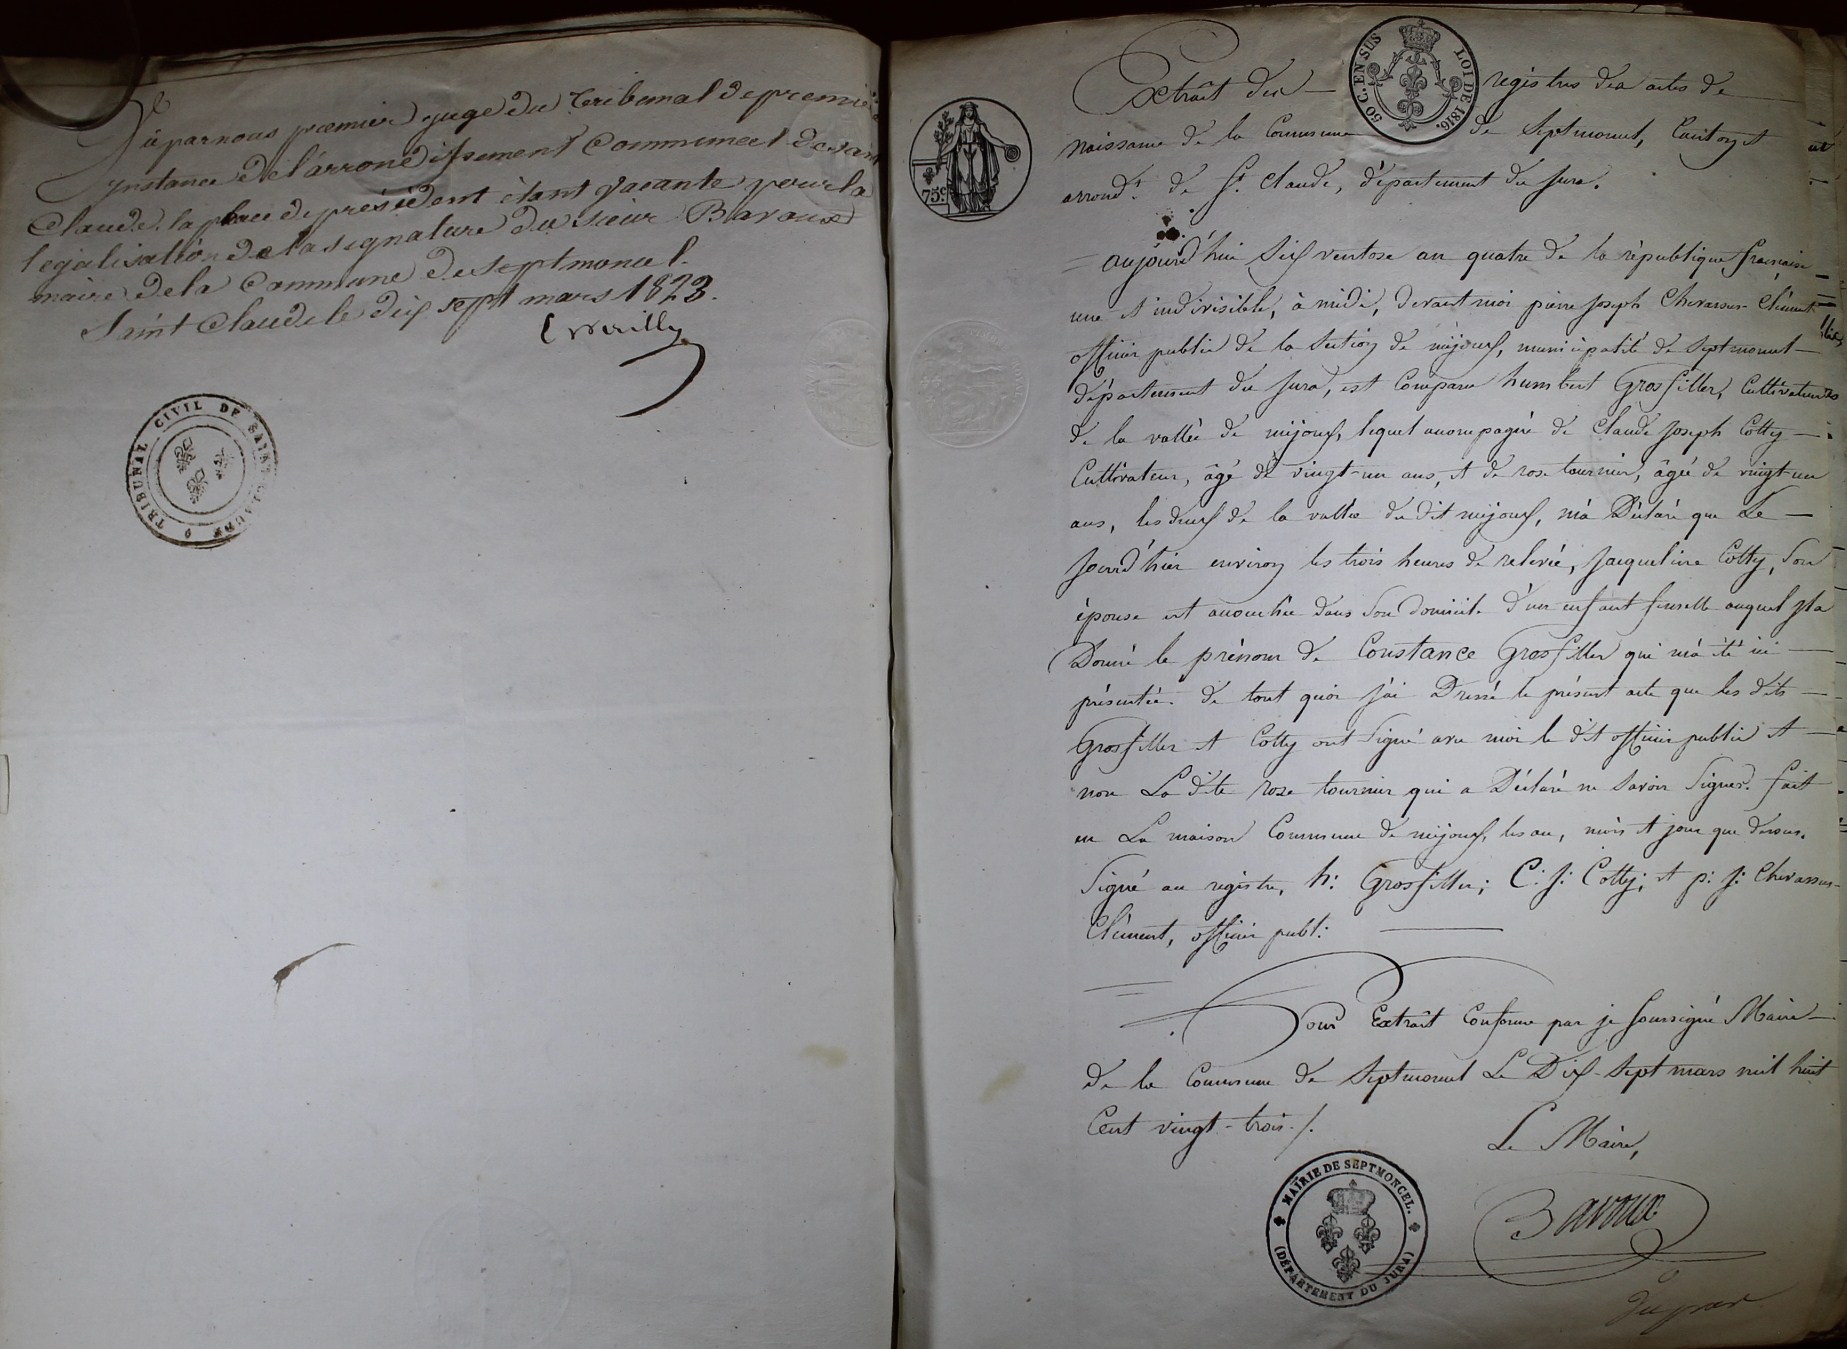 Vu par nous premier juge du Tribunal de premiere
instance de l'arrondissement communal de saint
Claude, la place de président étant vacante pour la
legalisation de la signature du sieur Bavoux
maire de la Commune de septmoncel.
Saint Claude le dix sept mars 1823.
TRIBUNAL CIVIL DE SAINT CLAUDE
50 C. EN SUS LOI DE 1816.
75c.
Extrait des registres des actes de
naissance de la Commune de Septmoncel, Canton et
arrond.t de St. Claude, département du Jura.
aujourd'hui six ventose an quatre de la république francaise
une et indivisible, à midi, devant moi pierre Joseph Chevassus-Clément
officier public de la section de mijoux, municipalité de Septmoncel
département du Jura, est Comparu humbert Grosfiller, Cultivateur
de la vallée de mijoux, lequel accompagné de Claude Joseph Cotty
Cultivateur, âgé de vingt-un ans, et de rose tournier, âgée de vingt-un
ans, les deux de la vallée du dit mijoux, m'a Déclaré que Le
Jourd'hier environ les trois heures de relevée, Jacqueline Cotty, Son
épouse est accouchée dans Son Domicile d'un enfant femelle auquel Il a
Donné le prénom de Constance Grosfiller qui m'a été ici
présentée. de tout quoi J'ai Dressé le présent acte que les dits
Grosfiller et Cotty ont Signé avec moi le dit officier public et
non La dite rose tournier qui a Déclaré ne Savoir Signer. fait
en La maison Commune de mijoux, les an, mois et jour que dessus.
Signé au registre, h: Grosfiller; C: J: Cotty; et p: J: Chevassus-
Clément, officier publ:
Pour Extrait Conforme par je Soussigné Maire
de la Commune de Septmoncel Le Dix-Sept mars mil huit
Cent vingt-trois./.
Le Maire,
Bavoux
MAIRIE DE SEPTMONCEL.
(DÉPARTEMENT DU JURA)